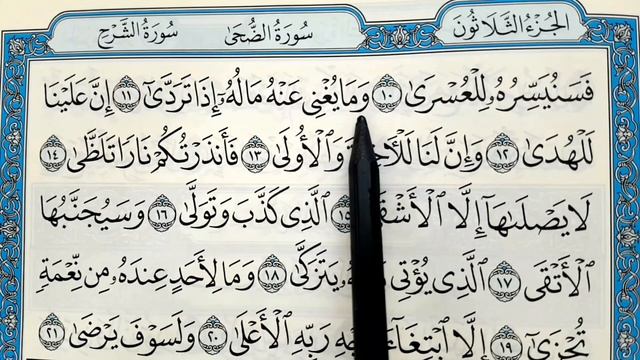 الجُزْءُ الثَّلَاثُونَ سُورَةُ الضُّحَىٰ سُورَةُ الشَّرْحِ
فَسَنُيَسِّرُهُۥ لِلْعُسْرَىٰ ١٠ وَمَا يُغْنِى عَنْهُ مَالُهُۥٓ إِذَا تَرَدَّىٰٓ ١١ إِنَّ عَلَيْنَا
لَلْهُدَىٰ ١٢ وَإِنَّ لَنَا وَٱلْأُولَىٰ ١٣ فَأَنذَرْتُكُمْ نَارًا تَلَظَّىٰ ١٤
لَا يَصْلَىٰهَآ إِلَّا ١٥ ٱلَّذِى كَذَّبَ وَتَوَلَّىٰ ١٦ وَسَيُجَنَّبُهَا
ٱلْأَتْقَى ١٧ ٱلَّذِى يُؤْتِى يَتَزَكَّىٰ ١٨ وَمَا لِأَحَدٍ عِندَهُۥ مِن نِّعْمَةٍ
تُجْزَىٰٓ ١٩ إِلَّا رَبِّهِ ٱلْأَعْلَىٰ ٢٠ وَلَسَوْفَ يَرْضَىٰ ٢١